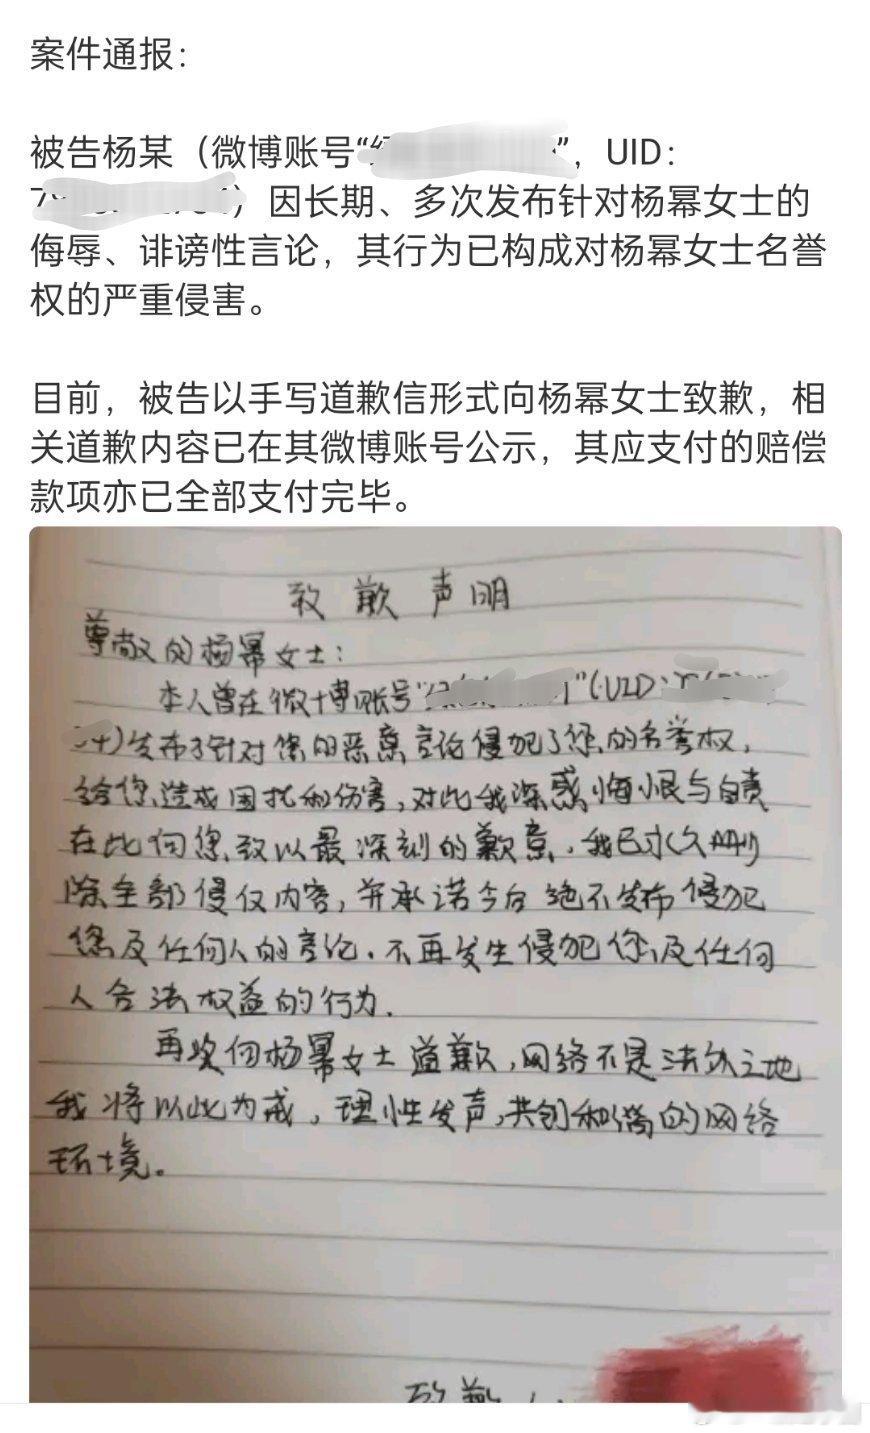 案件通报：
被告杨某（微博账号“”，UID：
）因长期、多次发布针对杨幂女士的
侮辱、诽谤性言论，其行为已构成对杨幂女士名誉
权的严重侵害。
目前，被告以手写道歉信形式向杨幂女士致歉，相
关道歉内容已在其微博账号公示，其应支付的赔偿
款项亦已全部支付完毕。
致歉声明
尊敬的杨幂女士：
本人曾在微博账号“”(UID:
)发布了针对您的恶意言论侵犯了您的名誉权，
给您造成困扰和伤害，对此我深感悔恨与自责
在此向您致以最深刻的歉意，我已永久删
除全部侵权内容，并承诺今后绝不发布侵犯
您及任何人的言论，不再发生侵犯您及任何
人合法权益的行为．
再次向杨幂女士道歉，网络不是法外之地
我将以此为戒，理性发声，共创和谐的网络
环境。
致歉人：